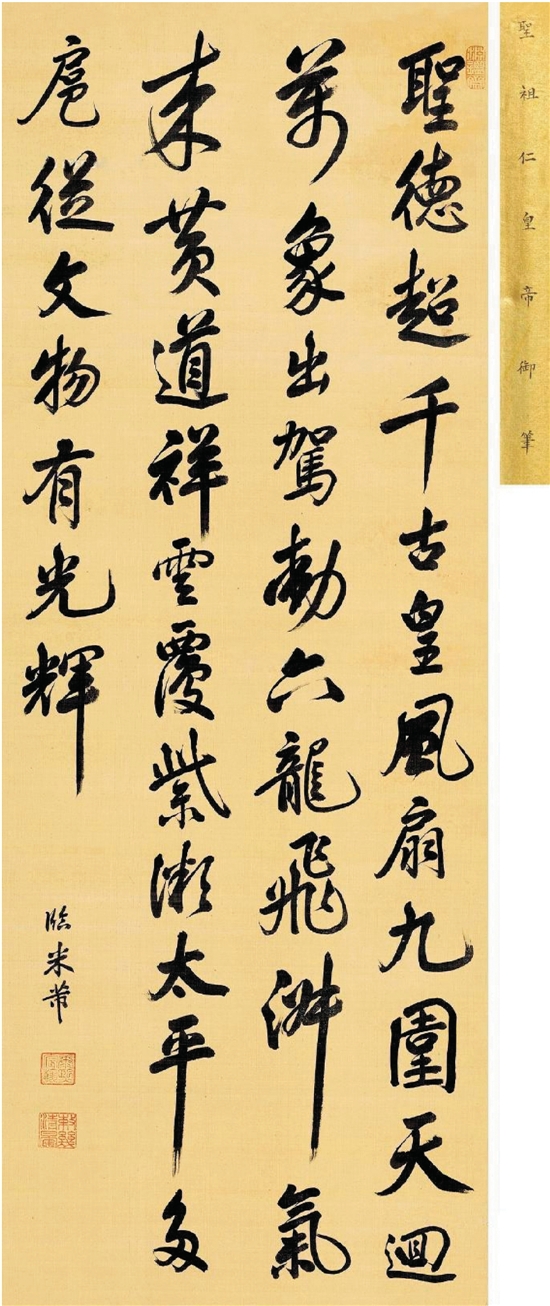 聖祖仁皇帝御筆
聖德超千古皇風扇九圍天迴
萬象出駕動六龍飛淑氣
來黃道祥雲覆紫微太平多
扈從文物有光輝
臨米芾